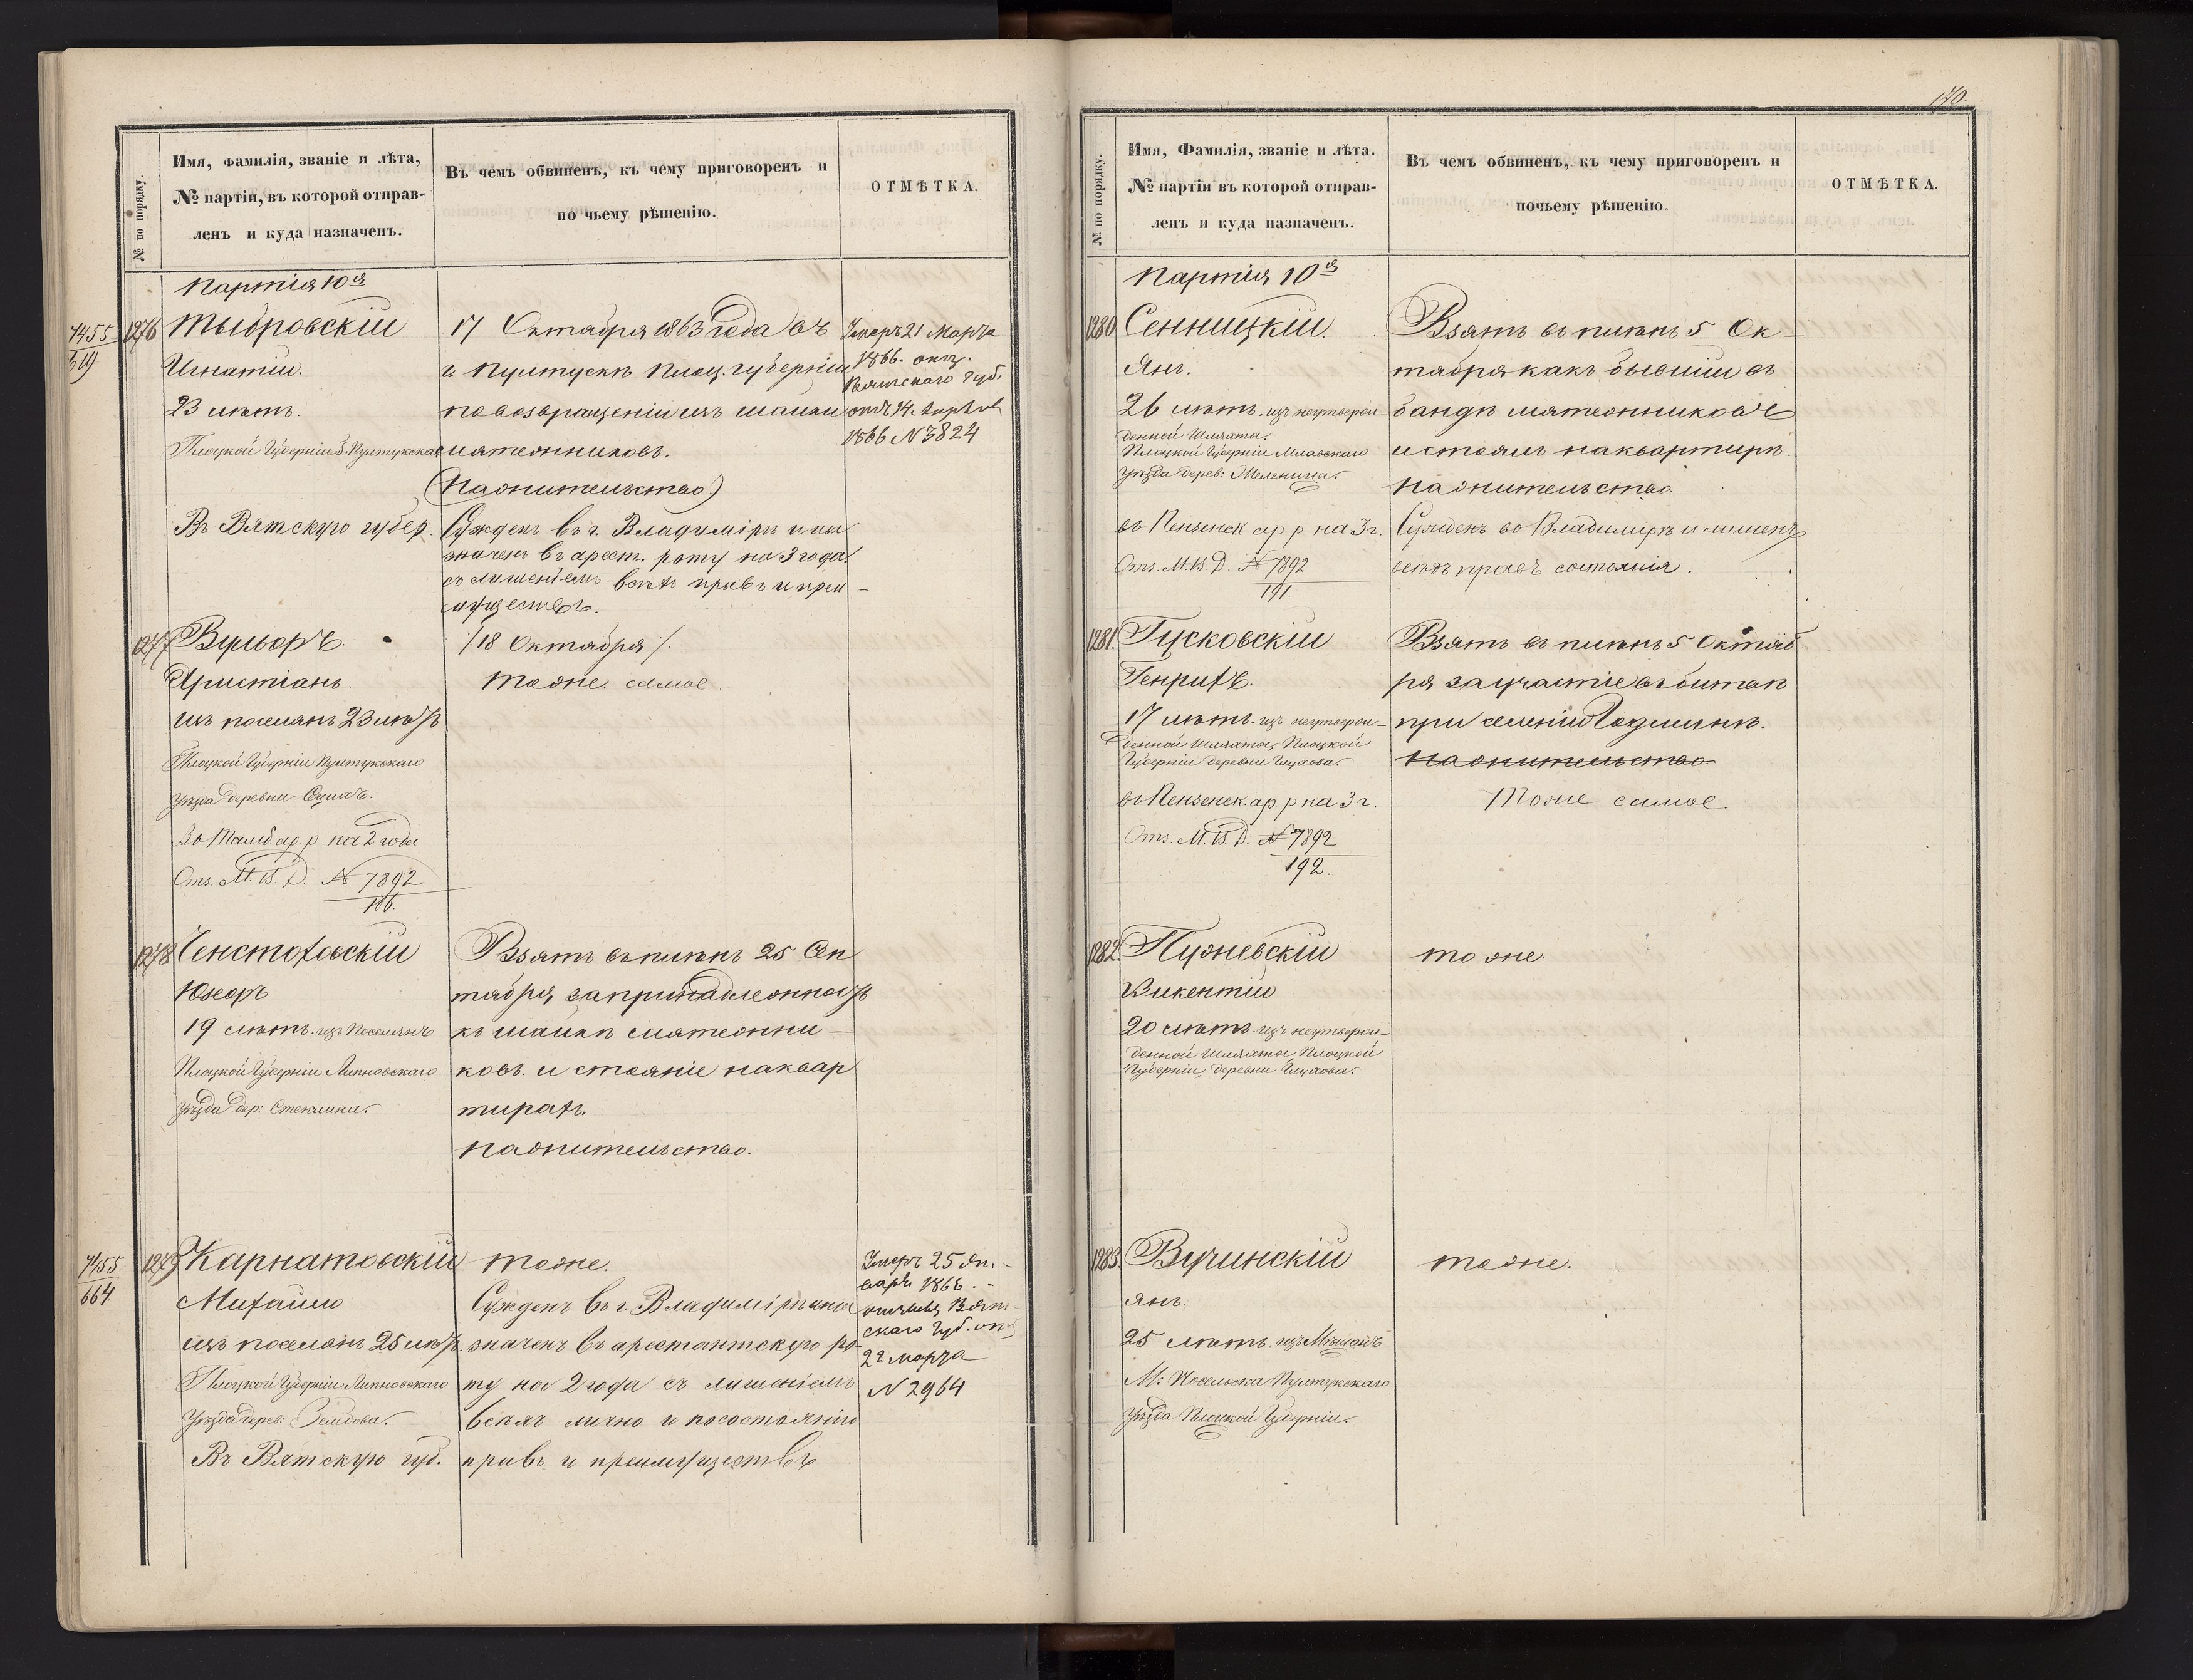 № по порядку.
Имя, Фамилія, званіе и лѣта,
№ партіи, въ которой отправ-
ленъ и куда назначенъ.
Въ чемъ обвиненъ, къ чему приговоренъ и
по чьему рѣшенію.
ОТМѢТКА.
Партія 10я
7455
619
1276
Тыбровскій
Игнатій.
23 лѣтъ.
Плоцкой Губерніи
Въ Вятскую губер.
17 Октября 1863 года въ
г. Пултускѣ Плоц. губерніи
по возвращеніи изъ шайки
мятежниковъ.
(На жительство)
Сужденъ въ г. Владимірѣ и на
значенъ въ арест. роту на 3 года.
съ лишеніемъ всѣхъ правъ и преи-
муществъ.
Умеръ 21 Марта
1866.
Вятскаго Губ.
отъ 14 Апрѣля
1866 N 3824
1277
Христіанъ.
изъ поселянъ 23 лѣтъ
Плоцкой Губерніи Пултускаго
уѣзда деревни
ар р на 2 года
Отз. М. В. Д. № 7892
186.
/:18 Октября:/.
тоже самое.
1278
Ченстоховскій
Юзефъ
19 лѣтъ. изъ Поселянъ
Плоцкой Губерніи Липновскаго
уѣзда дер: Стеклина.
Взятъ въ плѣнъ 25 Сен
тября за принадлежность
къ шайкѣ мятежни-
ковъ. и стояніе на квар
тирахъ.
На жительство.
7455
664
1279
Карнатовскій
Михаилъ
изъ поселянъ 25 лѣтъ.
Плоцкой Губерніи Липновскаго
Уѣзда дерев:
Въ Вятскую губ.
тоже.
Сужденъ въ г. Владимірѣ и на
значенъ въ арестантскую ро-
ту на 2 года съ лишеніемъ
всѣхъ лично и по состоянію
правъ и преимуществъ
Умеръ 25 Ян.-
варя 1866.-
Вят
скаго Губ. от
22 Марта
N 2964
170.
№ по порядку.
Имя, Фамилія, званіе и лѣта.
№ партіи въ которой отправ-
ленъ и куда назначенъ.
Въ чемъ обвиненъ, къ чему приговоренъ и
почьему рѣшенію.
ОТМѢТКА.
Партія 10я
1280
Сенницкій.
Янъ.
26 лѣтъ. изъ неутверж-
денной Шляхты.
Плоцкой Губерніи Млавскаго
Уѣзда дерев:
въ Пензенск ар р на 3 г.
Отз. М. В. Д. № 7892
191
Взятъ въ плѣнъ 5 Ок-
тября какъ бывшій въ
бандѣ мятежниковъ
и стоялъ на квартирѣ.
На жительство.
Сужденъ во Владимірѣ и лишенъ
всѣхъ правъ состоянія.
1281.
Гусковскій
Генрихъ.
17 лѣтъ. изъ неутверж-
денной Шляхты, Плоцкой
Губерніи деревни Глухова.
въ Пензенск. ар р на 3 г.
Отз. М. В. Д. № 7892
192.
Взятъ въ плѣнъ 5 Октяб
ря за участіе въ битвѣ
при селеніи
На жительство
Тоже самое.
1282
Пужневскій
Викентій
20 лѣтъ изъ неутверж-
денной Шляхты, Плоцкой
Губерніи, деревни Глухова.
тоже.
1283.
Вучинскій
Янъ.
25 лѣтъ. изъ Мѣщанъ
М. Насельска Пултускаго
Уѣзда Плоцкой Губерніи.
тоже.